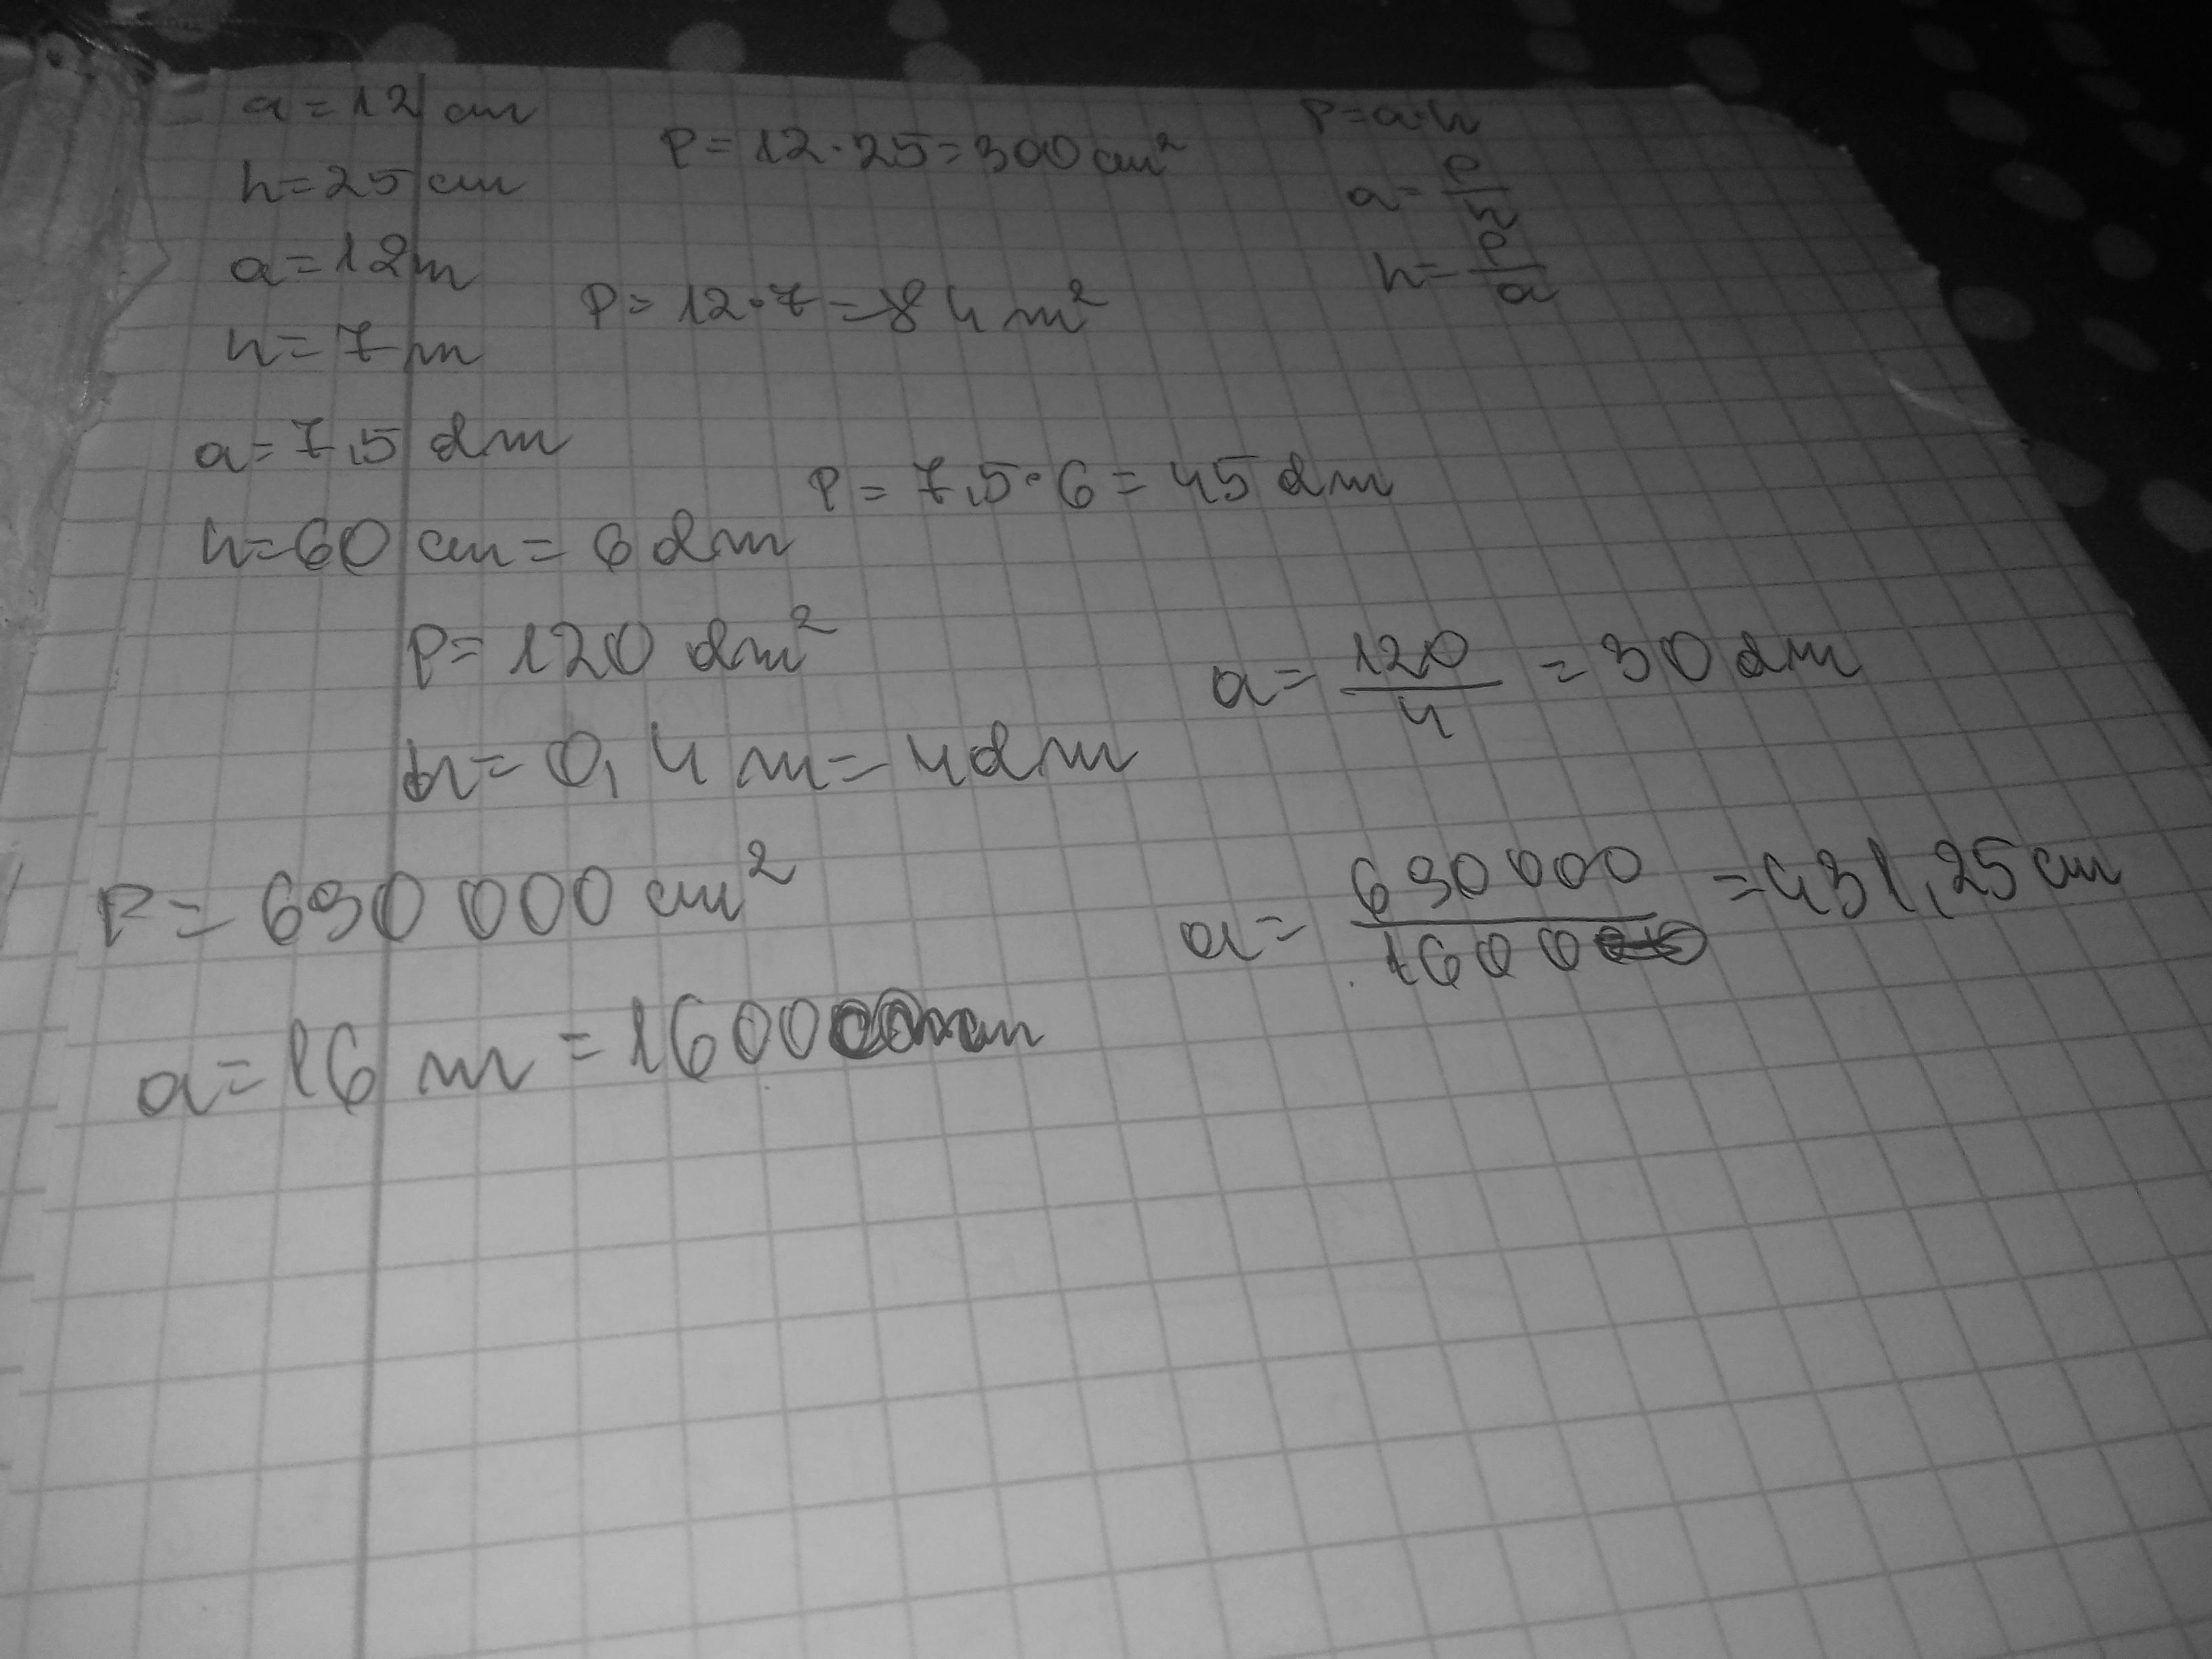 a = 12 cm
h = 25 cm
P = 12 · 25 = 300 cm²
P = a · h
a = P/h
h = P/a
a = 12 m
h = 7 m
P = 12 · 7 = 84 m²
a = 7,5 dm
h = 60 cm = 6 dm
P = 7,5 · 6 = 45 dm
P = 120 dm²
h = 0,4 m = 4 dm
a = 120/4 = 30 dm
P = 690 000 cm²
a = 16 m = 1600 cm
a = 690 000/1600 = 431,25 cm